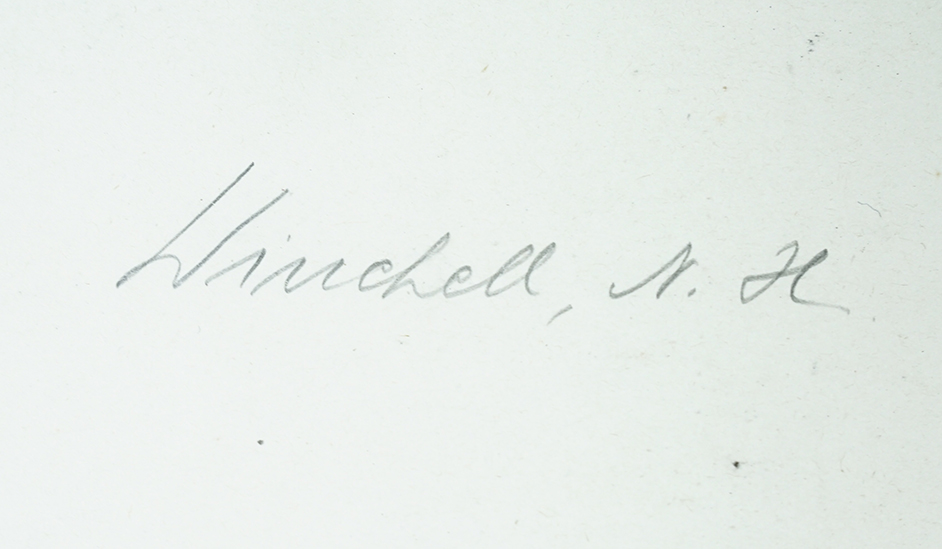 Winchell, N. H